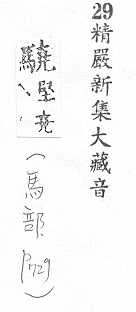 29精嚴新集大藏音
驍堅堯(馬部P729)